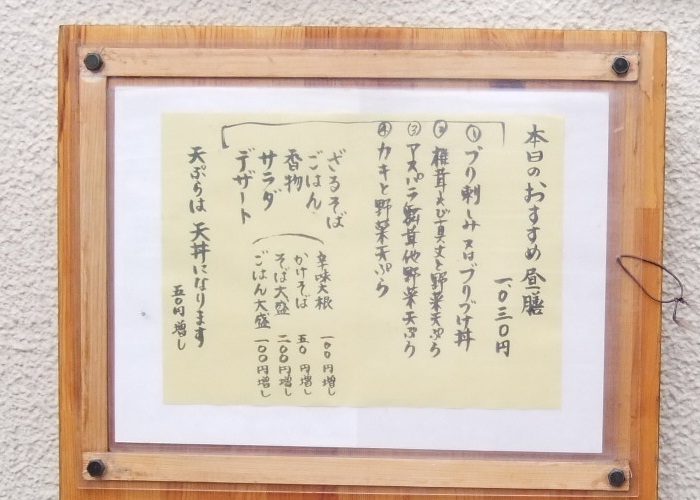 本日のおすすめ昼膳
一、〇三〇円
①ブリ刺しみ又はブリづけ丼
②椎茸えび真丈と野菜天ぷら
③アスパラ舞茸他野菜天ぷら
④カキと野菜天ぷら
ざるそば
ごはん
香物
サラダ
デザート
辛味大根 一〇〇円増し
かけそば 五〇円増し
そば大盛 二〇〇円増し
ごはん大盛 一〇〇円増し
天ぷらは天丼になります
五〇円増し